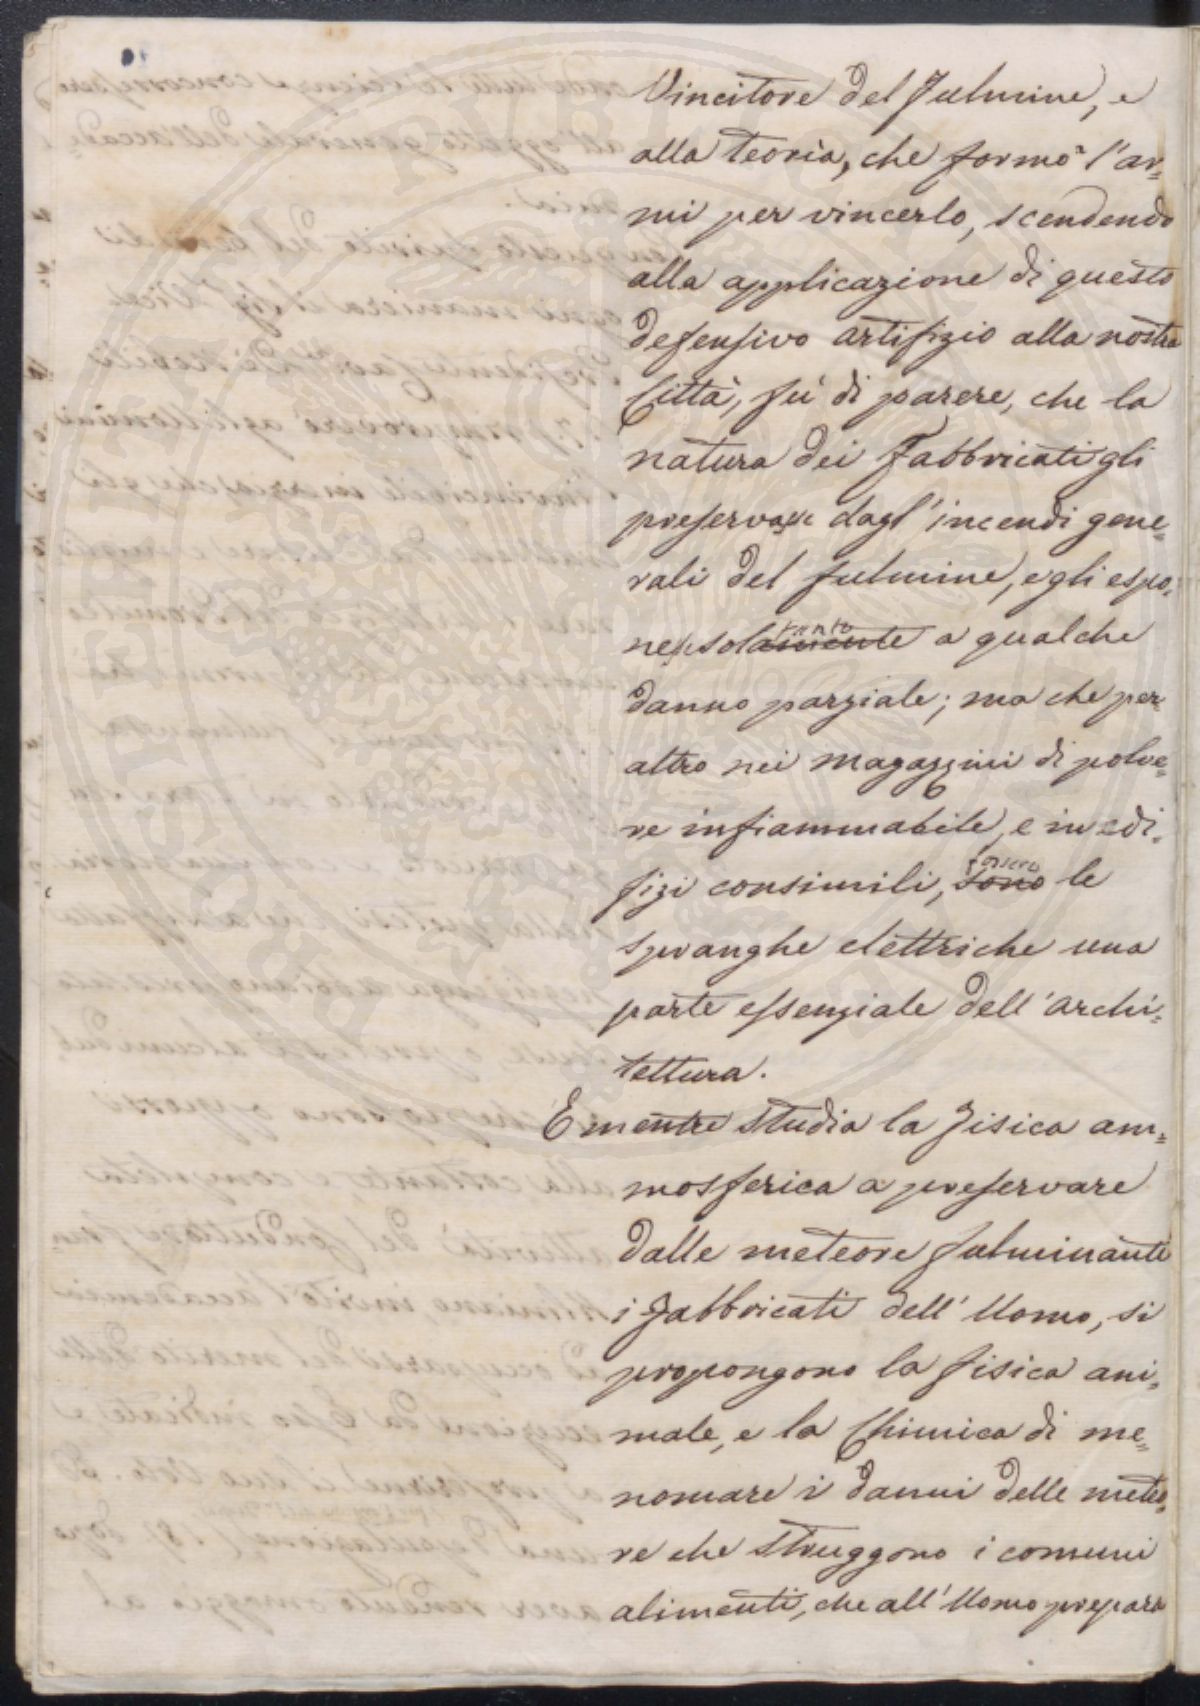 Vincitore del Fulmine, e
alla teorìa, che formò l'ar=
mi per vincerlo, scendendo
alla applicazione di questo
defensivo artifizio alla nostra
Città, fù di parere, che la
natura dei Fabbricati gli
preservasse dagl'incendi gene=
rali del fulmine, e gli espo=
nesse solamente a qualche
danno parziale; ma che per
altro nei magazzini di polve=
re infiammabile, e in edi=
fizi consimili, sono fossero le
spranghe elettriche una
parte essenziale dell'archi=
tettura.
E mentre studia la Fisica am=
mosferica a preservare
dalle meteore fulminanti
i Fabbricati dell'Uomo, si
propongono la fisica ani=
male, e la Chimica di me=
nomare i danni delle meteo=
re che struggono i comuni
alimenti, che all'Uomo prepara